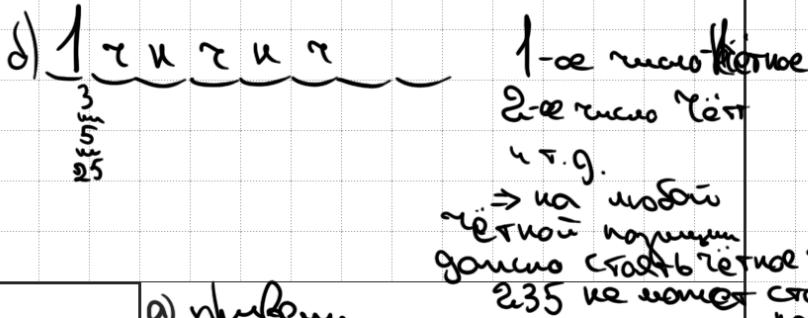 б) 1 ч н ч н ч
3
5
25
1-ое число
2-ое число чёт
и т.д.
⇒ на любой
чётной позиции
должно стоять чётное
235 не может
а)